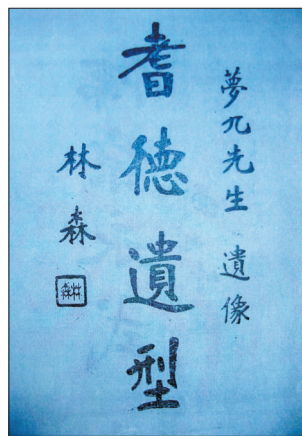 夢九先生 遺像
耆德遺型
林森